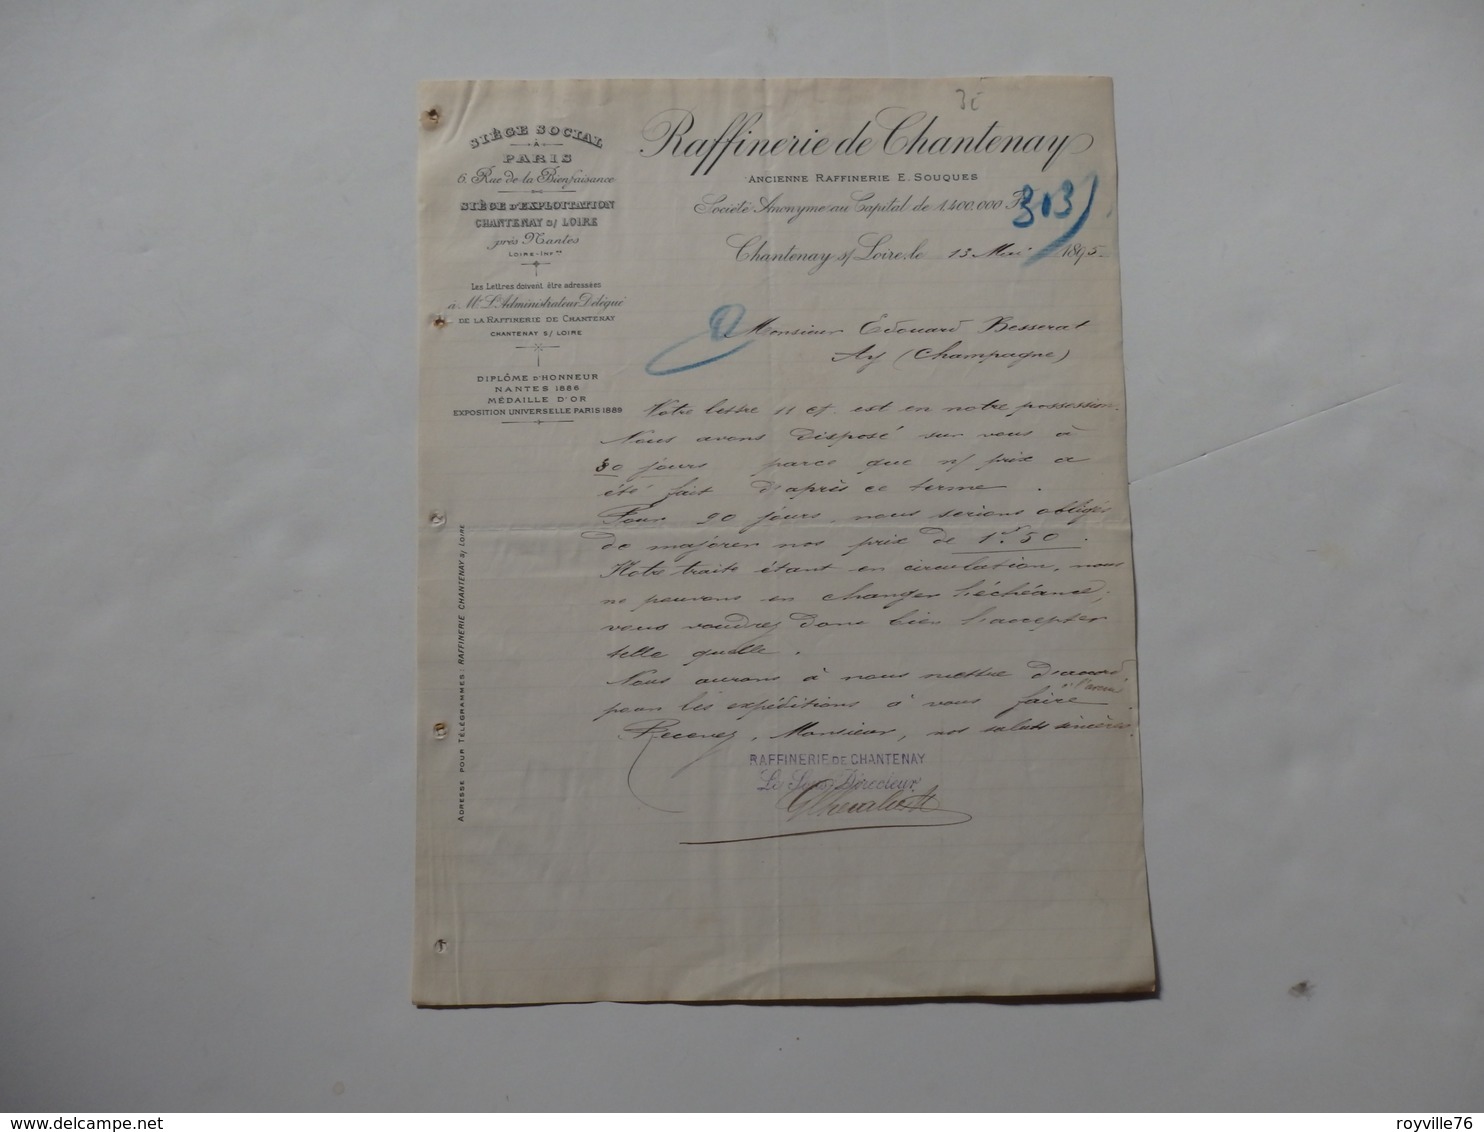 3c
SIÈGE SOCIAL
À
PARIS
6, Rue de la Bienfaisance
SIÈGE D'EXPLOITATION
CHANTENAY S/ LOIRE
près Nantes
LOIRE-INFre
Les Lettres doivent être adressées
à Mr L'Administrateur Délégué
DE LA RAFFINERIE DE CHANTENAY
CHANTENAY S/ LOIRE
DIPLÔME D'HONNEUR
NANTES 1886
MÉDAILLE D'OR
EXPOSITION UNIVERSELLE PARIS 1889
ADRESSE POUR TÉLÉGRAMMES: RAFFINERIE CHANTENAY S/ LOIRE
Raffinerie de Chantenay
ANCIENNE RAFFINERIE E. SOUQUES
Société Anonyme au Capital de 1.400.000 F
313
Chantenay s/ Loire, le 13 Mai 1895
Monsieur Edouard Besserat
Ay (Champagne)
Votre lettre 11 ct. est en notre possession.
Nous avons disposé sur vous à
30 jours parce que n/ prix a
été fait d'après ce terme.
Pour 90 jours, nous serions obligés
de majorer nos prix de 1f 50.
Notre traite étant en circulation, nous
ne pouvons en changer l'échéance;
vous voudrez donc bien l'accepter
telle quelle.
Nous aurons à nous mettre d'accord
pour les expéditions à vous faire à l'avenir
Recevez, Monsieur, nos saluts sincères.
RAFFINERIE DE CHANTENAY
Le Sous-Directeur
royville76